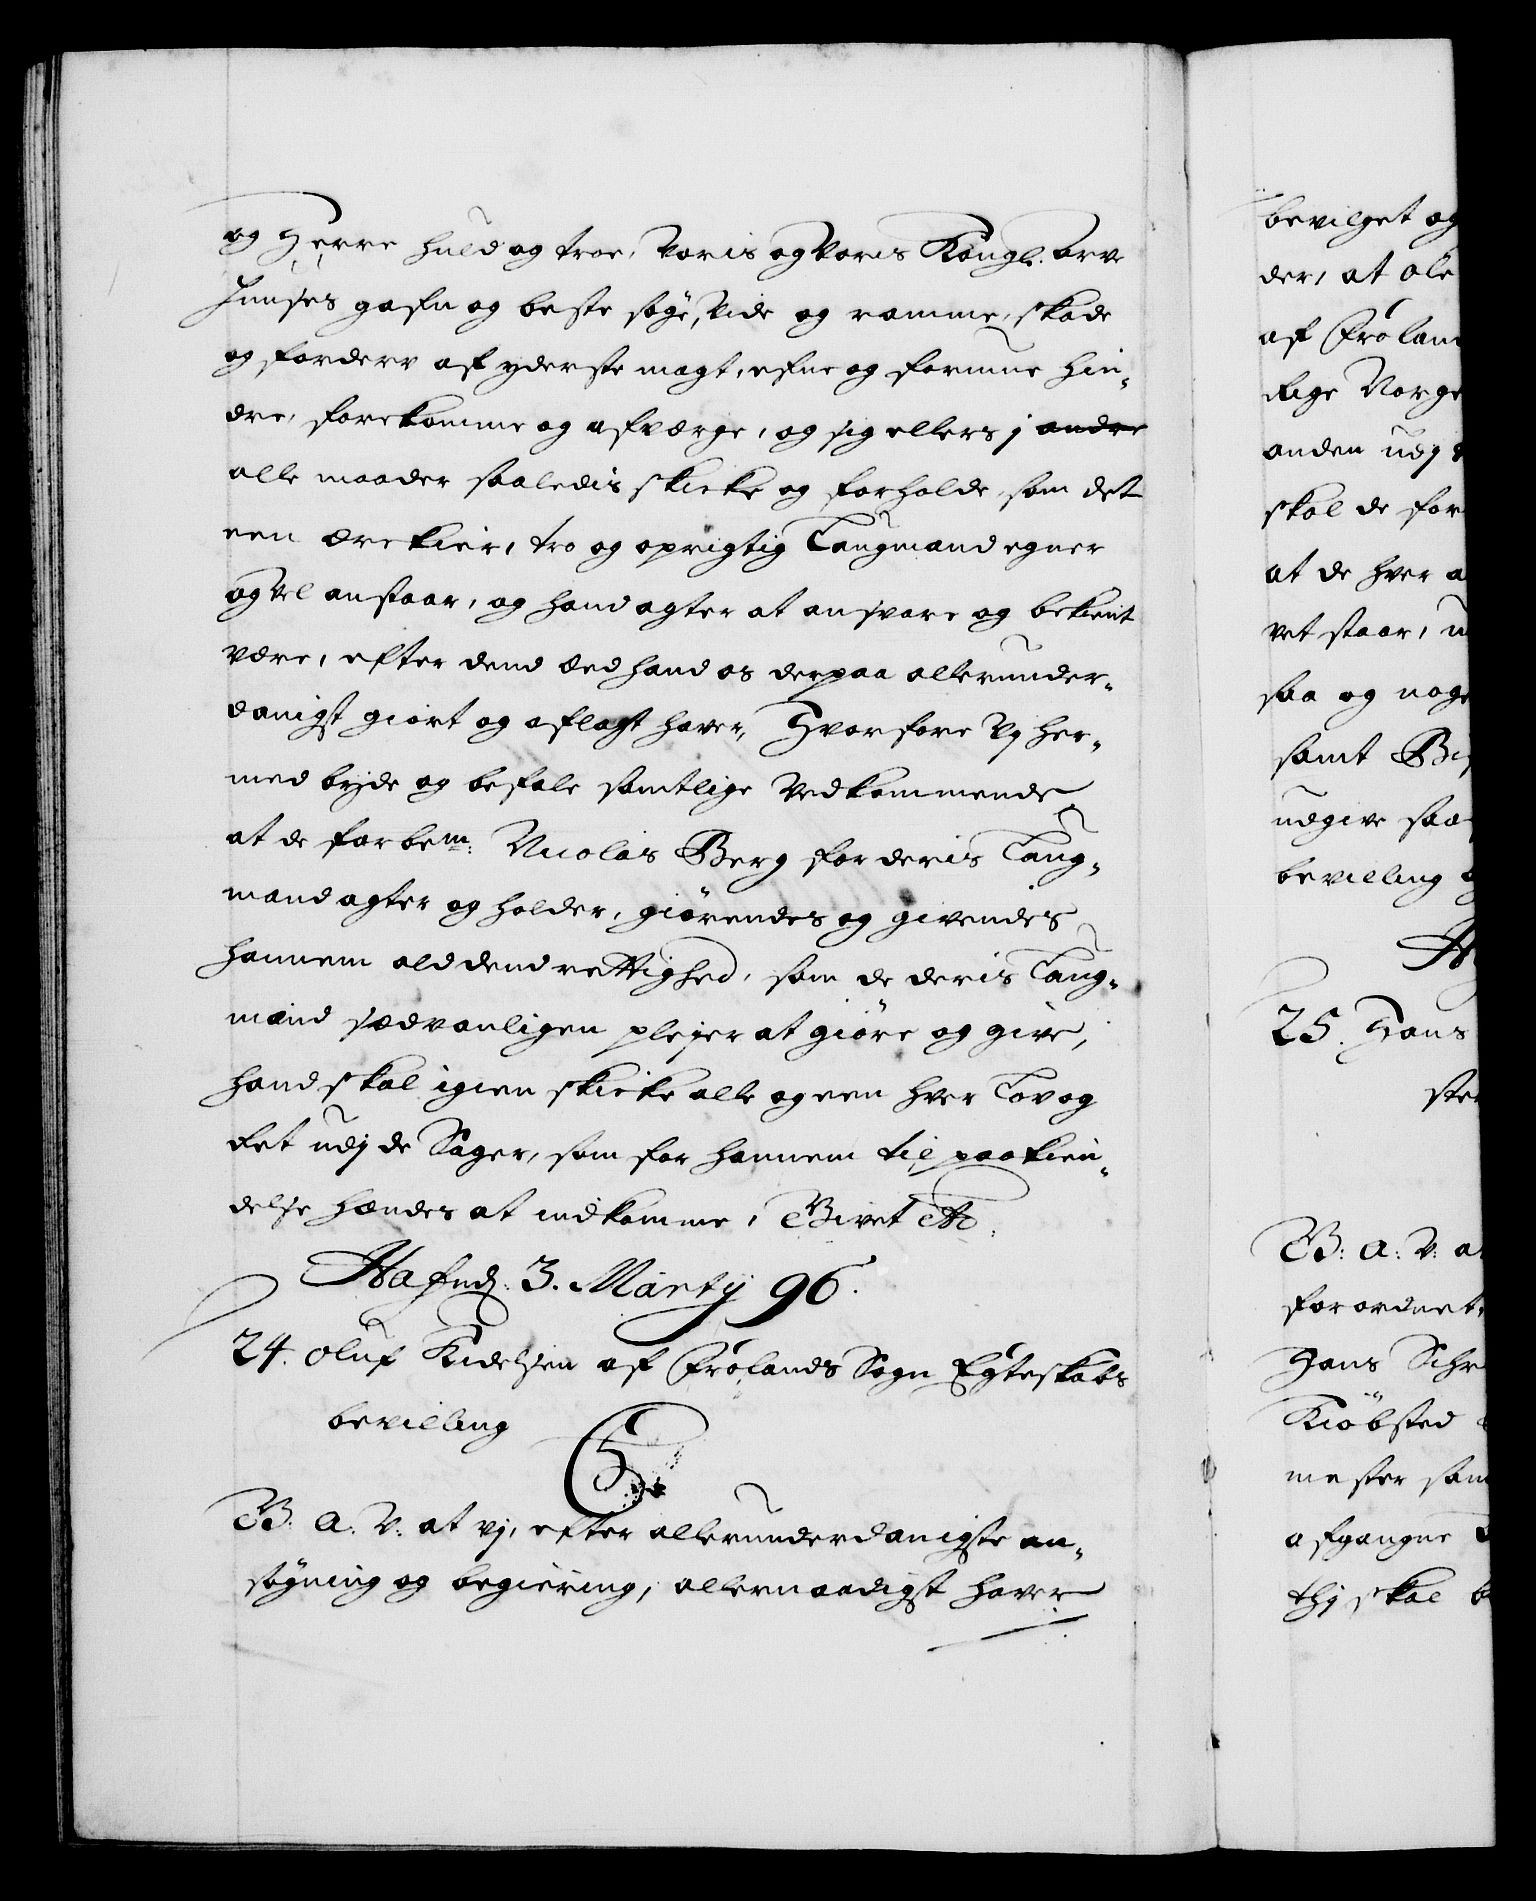 og Herre huld og troe, Voris og Voris Kongl. arve
Huuses gafn og beste søge, Vide og ramme, skade
og forderv af yderste magt, efne og formue hin-
dre, forekomme og afværge, og sig ellers j andre
alle maader saaledis skicke og forholde, som det
een ærekier, tro og oprigtig Laugmand egner
og Vel anstaar, og hand agter at ansvare og bekient
være, efter dend æed hand os derpaa allerunder-
danigst giort og aflagt haver, Hvorfore Vj her-
med byde og befale samtlige Vedkommende
at de forbem: Nicolas Berg for deris Laug-
mand agter og holder, giørendes og givendes
hannem ald dend rettighed, som de deris Laug-
mand sædvanligen plejer at giøre og give,
hand skal igien skicke alle og een hver Lov og
Ret udj de Sager, som for hannem til paakien-
delse hændes at indkomme, Givet etc.
Hafnd: 3. Martij 96.
24. Oluf Kidelsen af Frølands Sogn Egteskabs
bevilling
C5.
G: A: V: at vj, efter allerunderdanigste an-
søgning og begiering, allernaadigst haver
bevilget og
der, at Ole
af Frølan
Rige Norge
anden udj
skal de for
at de hver a
vet staar, u
saa og noge
samt Bis
udgive saa
bevilling
25. Hans
ste
G: A: V: a
forordnet,
Hans Schr
Kiöbsted
mester sam
afgangne
thj skal